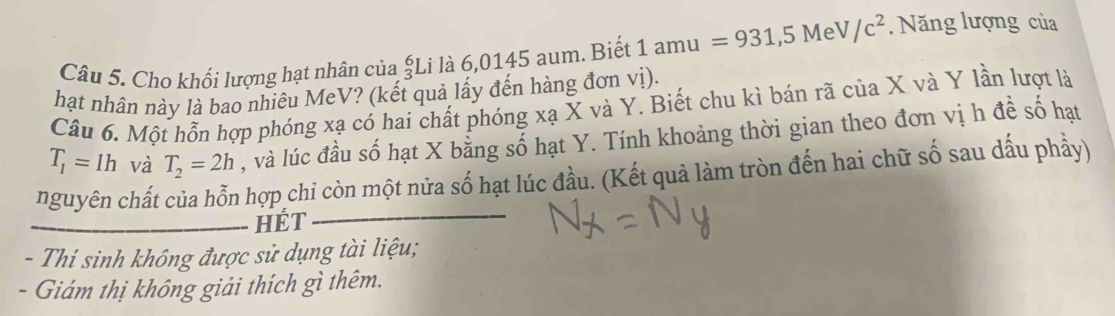 Câu 5. Cho khối lượng hạt nhân của ⁶₃Li là 6,0145 aum. Biết 1 amu = 931,5 MeV/c². Năng lượng của
hạt nhân này là bao nhiêu MeV? (kết quả lấy đến hàng đơn vị).
Câu 6. Một hỗn hợp phóng xạ có hai chất phóng xạ X và Y. Biết chu kì bán rã của X và Y lần lượt là
T₁ = 1h và T₂ = 2h , và lúc đầu số hạt X bằng số hạt Y. Tính khoảng thời gian theo đơn vị h để số hạt
nguyên chất của hỗn hợp chỉ còn một nửa số hạt lúc đầu. (Kết quả làm tròn đến hai chữ số sau dấu phẩy)
HẾT
Nx = Ny
- Thí sinh không được sử dụng tài liệu;
- Giám thị không giải thích gì thêm.